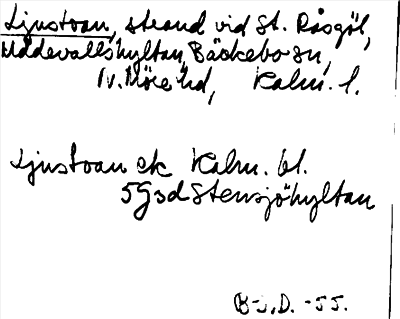 Ljustoan, strand vid St. Råsgöl,
Uddevallshyltan, Bäckebo sn,
N. Möre hd, Kalm. l.
Ljustoan ek Kalm. bl.
5G3d Stensjöhyltan
B-J.D. -55.